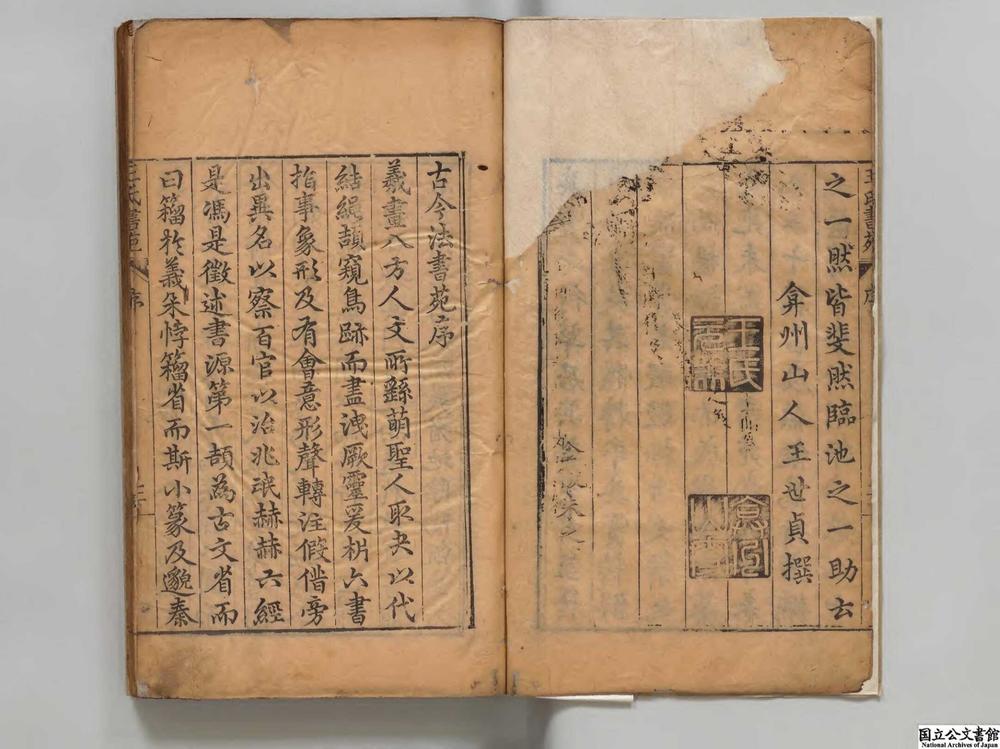 之一然皆斐然臨池之一助云
弇州山人王世貞撰
王氏書苑
序
古今法書苑序
羲畫八方人文所繇萌聖人取夬以代
結繩頡窺鳥跡而盡洩厥靈爰析六書
指事象形及有會意形聲轉注假借旁
出異名以察百官以治兆氓赫赫六經
是馮是徵述書源第一頡為古文省而
曰籀於義朵悖籀省而斯小篆及邈秦
王氏書苑
序
国立公文書館
National Archives of Japan